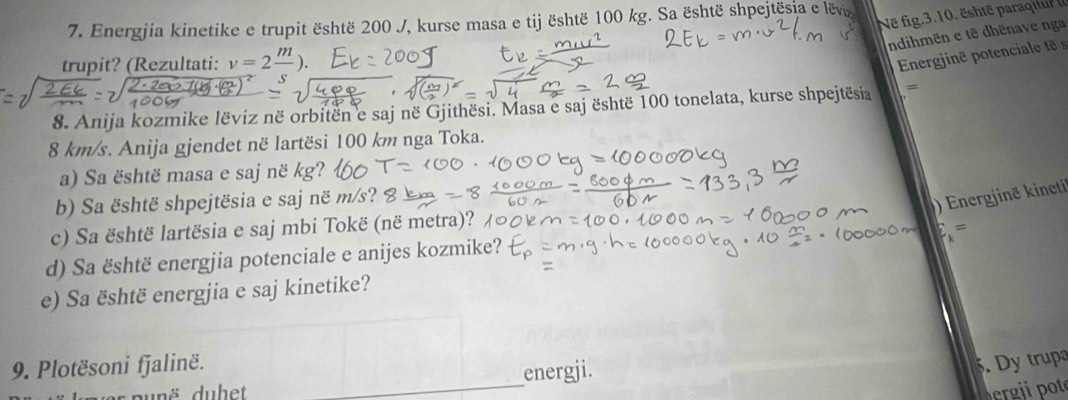 7. Energjia kinetike e trupit është 200 J, kurse masa e tij është 100 kg. Sa është shpejtësia e
trupit? (Rezultati: v = 2 m/s). Ek = 200J Ek = mv²/2 2Ek = m·v² /:m
= √2Ek/m = = √400/100 · = √4 = 2
8. Anija kozmike lëviz në orbitën e saj në Gjithësi. Masa e saj është 100 tonelata, kurse shpejtësia
8 km/s. Anija gjendet në lartësi 100 km nga Toka.
a) Sa është masa e saj në kg? 100 T = 100 · 1000 kg = 100000kg
b) Sa është shpejtësia e saj në m/s? 8 km = 8 1000m/60 = 8000m/60 = 133,3 m
c) Sa është lartësia e saj mbi Tokë (në metra)? 100km = 100·1000 m = 100000 m
d) Sa është energjia potenciale e anijes kozmike? Ep = m·g·h = 100000kg · 10 · 100000m
=
e) Sa është energjia e saj kinetike?
9. Plotësoni fjalinë.
duhet energji.
Në fig.3.10. është
ndihmën e të dhënave nga
Energjinë potenciale të s
=
) Energjinë kineti
=
5. Dy trupa